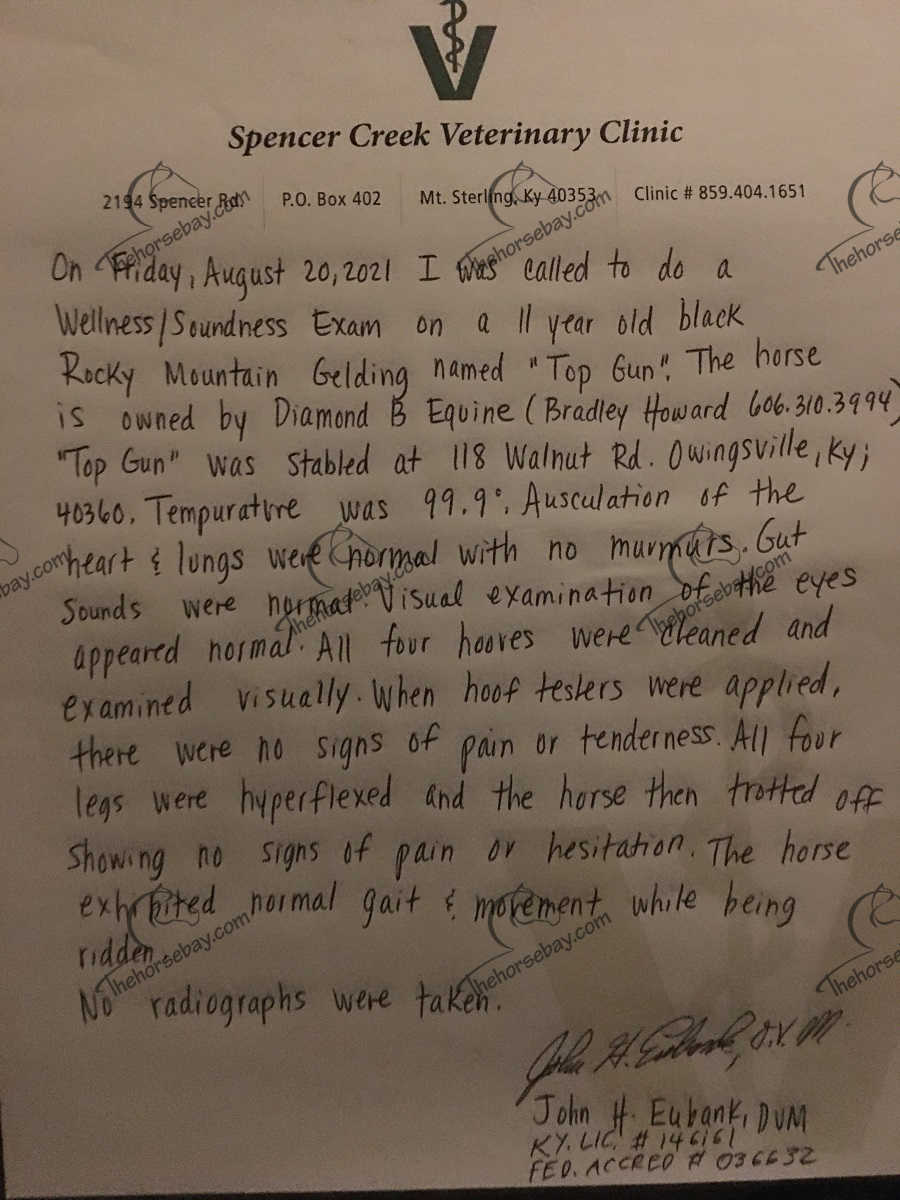 V
Spencer Creek Veterinary Clinic
2194 Spencer Rd. P.O. Box 402 Mt. Sterling, Ky 40353 Clinic # 859.404.1651
On Friday, August 20, 2021 I was called to do a
Wellness/Soundness Exam on a 11 year old black
Rocky Mountain Gelding named "Top Gun". The horse
is owned by Diamond B Equine (Bradley Howard 606.310.3994)
"Top Gun" was stabled at 118 Walnut Rd. Owingsville, Ky;
40360. Tempurature was 99.9°. Ausculation of the
heart & lungs were normal with no murmurs. Gut
Sounds were normal. Visual examination of the eyes
appeared normal. All four hooves were cleaned and
examined visually. When hoof testers were applied,
there were no signs of pain or tenderness. All four
legs were hyperflexed and the horse then trotted off
showing no signs of pain or hesitation. The horse
exhibited normal gait & movement while being
ridden.
No radiographs were taken.
John H. Eubank, D.V.M.
John H. Eubank, DVM
KY. LIC. # 146161
FED. ACCRED # 036632
Thehorsebay.com
Thehorsebay.com
Thehorse
bay.com
Thehorsebay.com
Thehorsebay.com
Thehorsebay.com
Thehorsebay.com
Thehorse